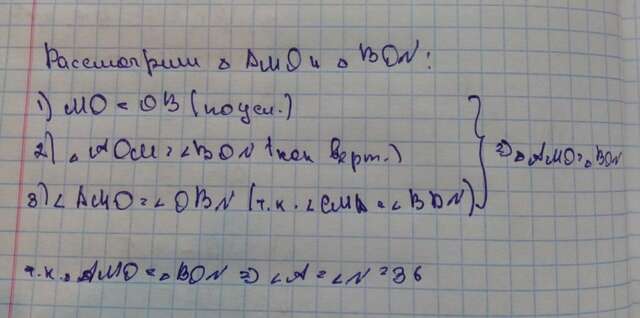 Рассмотрим ▵ AMO и ▵ BON:
1) MO = OB (по усл.)
2) ▵ AOM = ∠BON (как верт.)
3) ∠ AMO = ∠ OBN (т.к. ∠CMA = ∠BDN)
⇒ ▵ AMO = ▵ BON
т.к. ▵ AMO = ▵ BON ⇒ ∠A = ∠N = 36